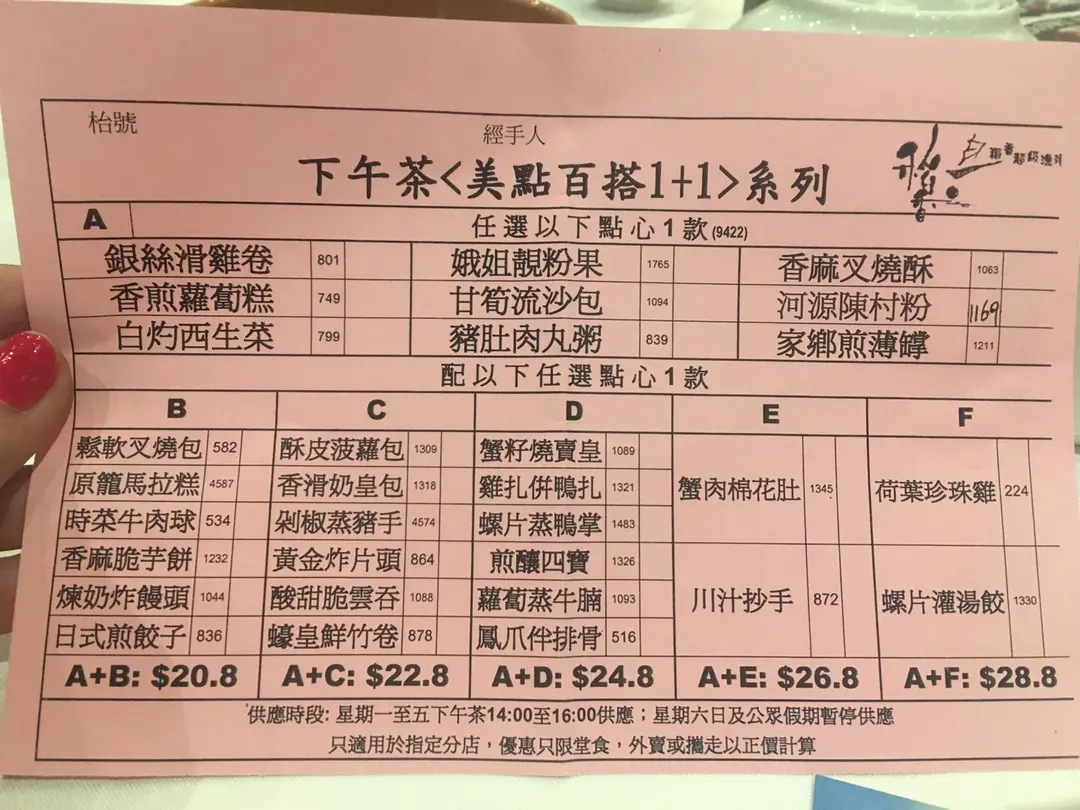 枱號
經手人
下午茶<美點百搭1+1>系列
稻香超級漁港
A 任選以下點心1款(9422)
銀絲滑雞卷 801 娥姐靚粉果 1765 香麻叉燒酥 1063
香煎蘿蔔糕 749 甘筍流沙包 1094 河源陳村粉 1169
白灼西生菜 799 豬肚肉丸粥 839 家鄉煎薄罉 1211
配以下任選點心1款
B C D E F
鬆軟叉燒包 582 酥皮菠蘿包 1309 蟹籽燒賣皇 1089
原籠馬拉糕 4587 香滑奶皇包 1318 雞扎併鴨扎 1321 蟹肉棉花肚 1345 荷葉珍珠雞 224
時菜牛肉球 534 剁椒蒸豬手 4574 螺片蒸鴨掌 1483
香麻脆芋餅 1232 黃金炸片頭 864 煎釀四寶 1326
煉奶炸饅頭 1044 酸甜脆雲吞 1088 蘿蔔蒸牛腩 1093 川汁抄手 872 螺片灌湯餃 1330
日式煎餃子 836 蠔皇鮮竹卷 878 鳳爪伴排骨 516
A+B: $20.8 A+C: $22.8 A+D: $24.8 A+E: $26.8 A+F: $28.8
供應時段: 星期一至五下午茶14:00至16:00供應；星期六日及公眾假期暫停供應
只適用於指定分店，優惠只限堂食，外賣或攜走以正價計算